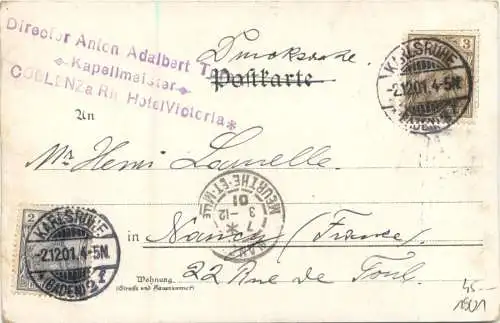 Director Anton Adalbert
Kapellmeister
COBLENZ a Rh Hotel Victoria
Drucksache
Postkarte
3
KARLSRUHE
-2.12.01. 4-5N.
(BADEN)
An
Mr Henri
MEURTHE-ET-MLLE
3 -12
01
2
KARLSRUHE
-2.12.01. 4-5N.
(BADEN) 2
in Nancy (France)
22 Rue de Toul.
Wohnung.
(Straße und Hausnummer)
45-
1901